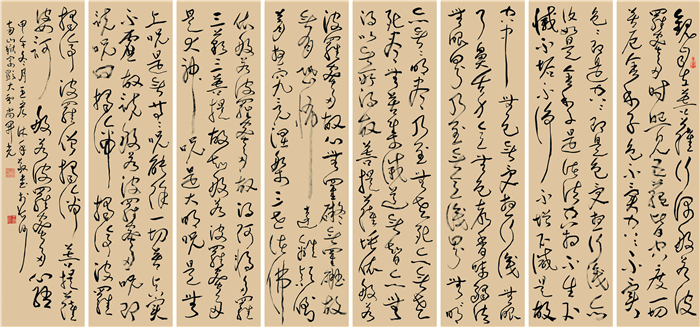 觀自在菩薩行深般若波
羅蜜多時照見五蘊皆空度一切
苦厄舍利子色不異空空不異
色色即是空空即是色受想行識亦
復如是舍利子是諸法空相不生不
滅不垢不淨不增不減是故
空中無色無受想行識無眼
耳鼻舌身意無色聲香味觸法
無眼界乃至無意識界無無明
亦無無明盡乃至無老死亦無老
死盡無苦集滅道無智亦無
得以無所得故菩提薩埵依般若
波羅蜜多故心無罣礙無罣礙故
無有恐怖遠離顛倒
夢想究竟涅槃三世諸佛
依般若波羅蜜多故得阿耨多羅
三藐三菩提故知般若波羅蜜多
是大神咒是大明咒是無
上咒是無等等咒能除一切苦真實
不虛故說般若波羅蜜多咒即
說咒曰揭諦揭諦波羅
揭諦波羅僧揭諦菩提薩
婆訶般若波羅蜜多心經
甲午冬月